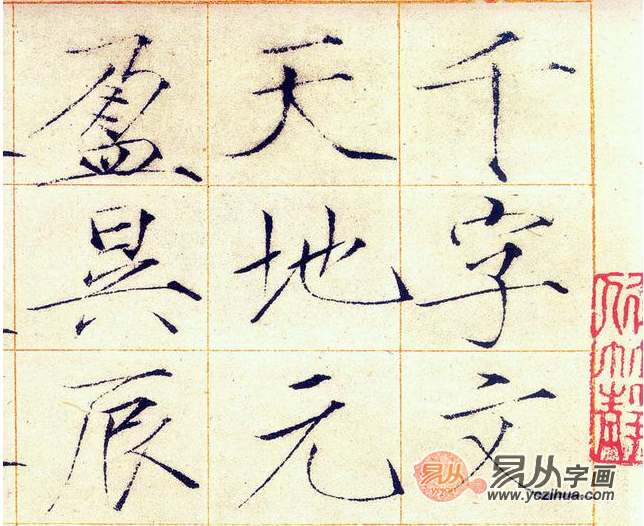 千字文
天地元
盈昃辰
易从
易从字画
www.yczihua.com